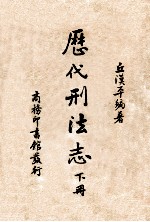 丘漢平編著
歷代刑法志
下冊
商務印書館發行